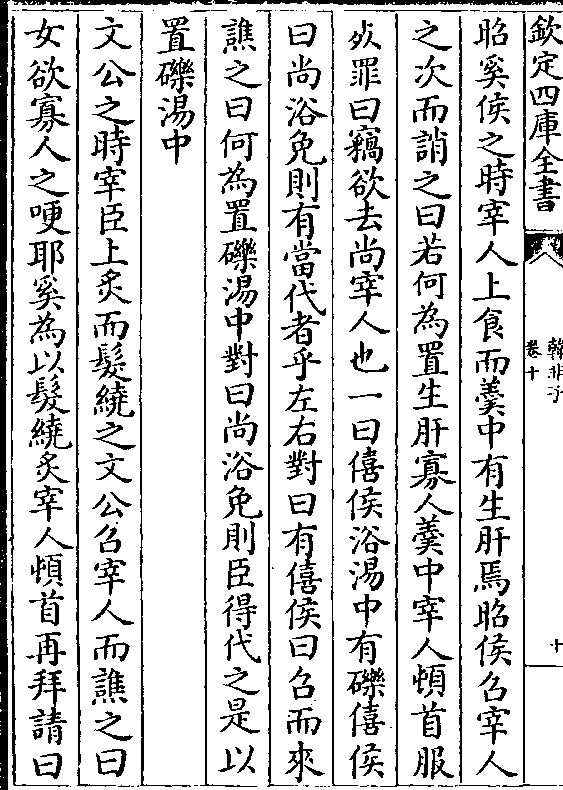 欽定四庫全書
韓非子
卷十
十
昭奚侯之時宰人上食而羮中有生肝焉昭侯召宰人
之次而誚之曰若何為置生肝寡人羮中宰人頓首服
死罪曰竊欲去尚宰人也一曰僖侯浴湯中有礫僖侯
曰尚浴免則有當代者乎左右對曰有僖侯曰召而來
譙之曰何為置礫湯中對曰尚浴免則臣得代之是以
置礫湯中
文公之時宰臣上炙而髮繞之文公召宰人而譙之曰
女欲寡人之哽耶奚為以髮繞炙宰人頓首再拜請曰